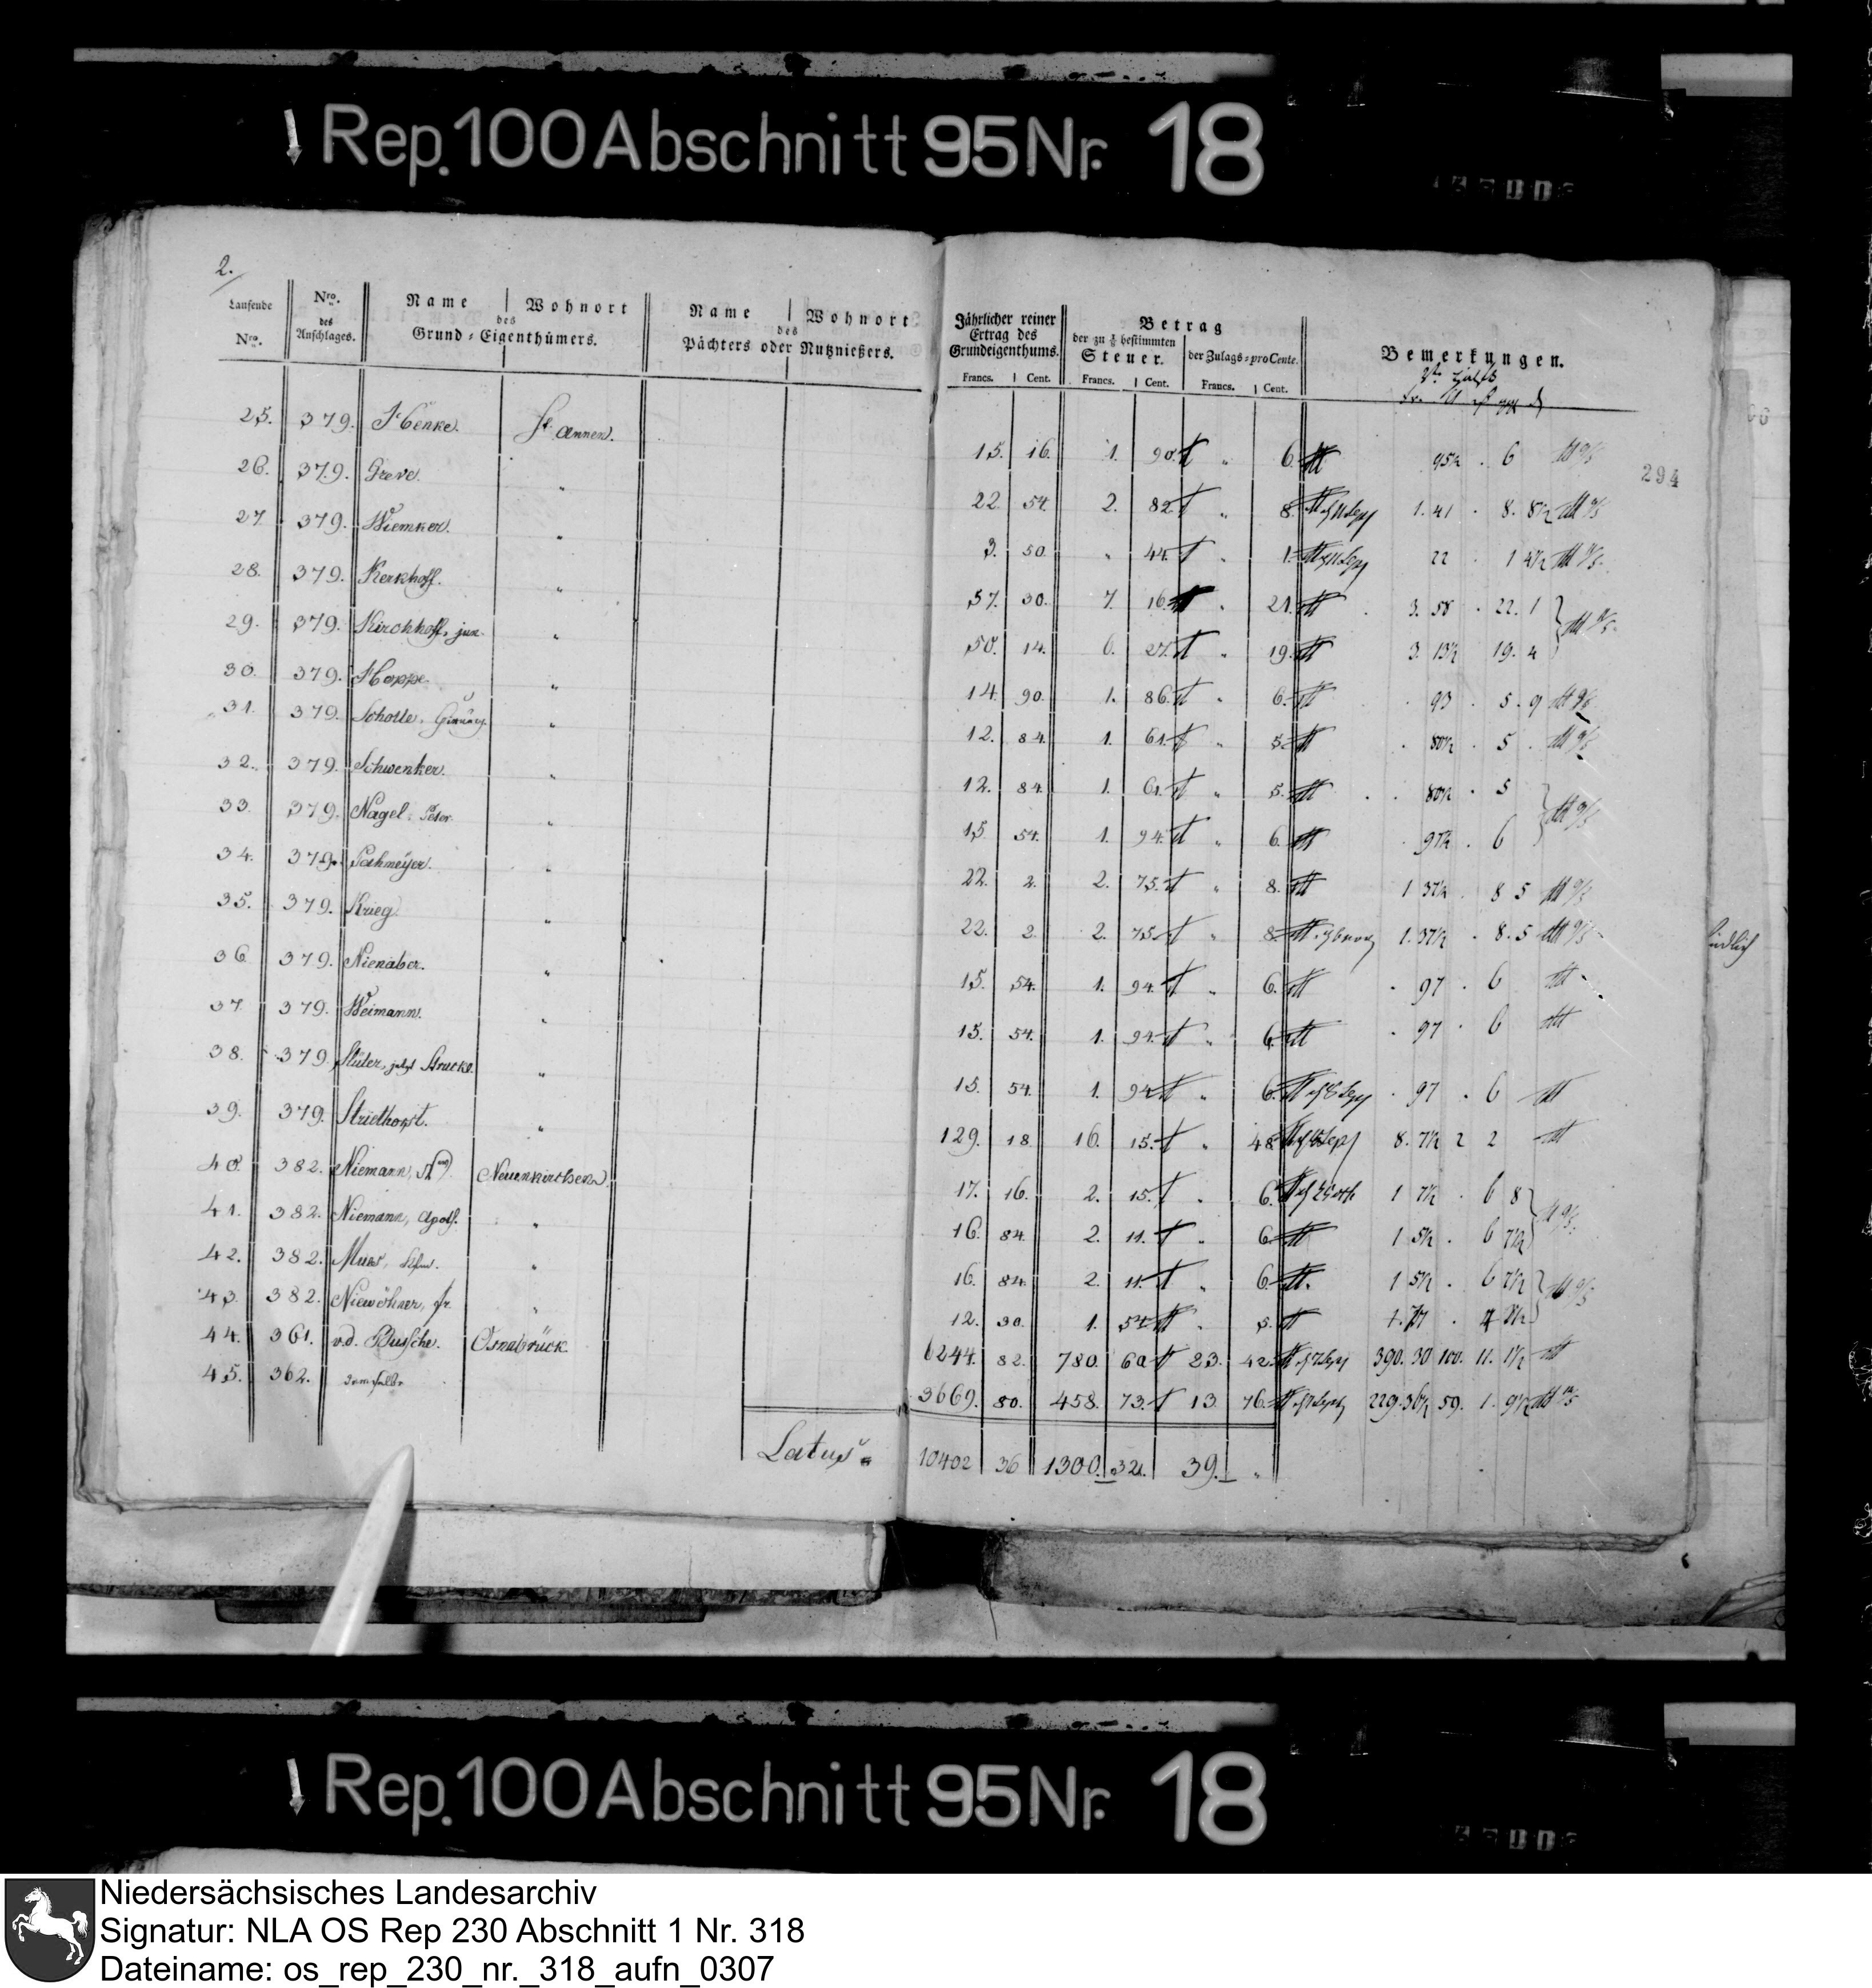 Rep. 100 Abschnitt 95 Nr. 18
2.
Laufende Nro. | Nro. des Anschlages. | Name | Wohnort des Grund-Eigenthümers. | Name | Wohnort des Pächters oder Nutznießers. | Jährlicher reiner Ertrag des Grundeigenthums. | Betrag der zu 1/8 bestimmten Steuer. | der Zulags-pro Cente. | Bemerkungen.
Francs. | Cent. | Francs. | Cent. | Francs. | Cent.
294
25. 379. Henke. St. Annen. 15. 16. 1. 90. " 6. 95½ . 6
26. 379. Greve. " 22. 54. 2. 82. " 8. 1. 41 . 8. 8½
27. 379. Wiemker. " 3. 50. " 44. " 1. 22 . 1 4½
28. 379. Kerkhoff. " 57. 30. 7. 16. " 21. 3. 58 . 22. 1
29. 379. Kirchhoff, jun. " 50. 14. 6. 27. " 19. 3. 13½ 19. 4
30. 379. Hoppe. " 14. 90. 1. 86. " 6. 93 . 5. 9
31. 379. Scholle, " 12. 84. 1. 61. " 5. 80½ . 5
32. 379. Schwenker. " 12. 84. 1. 61. " 5. 80½ . 5
33. 379. Nagel, Peter " 15. 54. 1. 94. " 6. 97½ . 6
34. 379. " 22. 2. 2. 75. " 8. 1 37½ . 8 5
35. 379. Krieg. " 22. 2. 2. 75. " 8. 1. 37½ . 8. 5
36. 379. Nienaber. " 15. 54. 1. 94. " 6. 97 . 6
37. 379. Weimann. " 15. 54. 1. 94. " 6. 97 . 6
38. 379. Stüler, jetzt Strucks. " 15. 54. 1. 94. " 6. 97 . 6
39. 379. Striethorst. " 129. 18. 16. 15. " 48. 8. 7½ 2 2
40. 382. Niemann, Neuenkirchen. 17. 16. 2. 15. " 6. 1 7½ . 6 8
41. 382. Niemann, Apoth. " 16. 84. 2. 11. " 6. 1 5½ . 6 7½
42. 382. " 16. 84. 2. 11. " 6. 1 5½ . 6 7½
43. 382. Niewöhner, " 12. 30. 1. 54. " 5.
44. 361. v.d. Bussche. Osnabrück. 6244. 82. 780. 60. 23. 42. 390. 30 100. 11. 1½
45. 362. 3669. 80. 458. 73. 13. 76. 229. 36½ 59. 1. 9½
Latus. 10402 36 1300. 32. 39. "
Rep. 100 Abschnitt 95 Nr. 18
Niedersächsisches Landesarchiv
Signatur: NLA OS Rep 230 Abschnitt 1 Nr. 318
Dateiname: os_rep_230_nr._318_aufn_0307